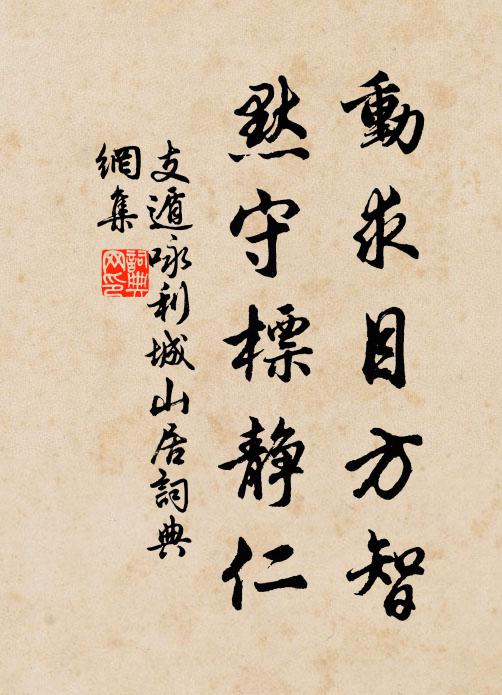 動求目方智
默守標静仁
支遁咏利城山居詞典
網集
詞典
网印